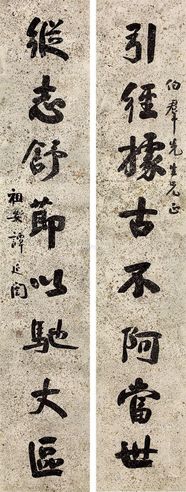 引經據古不阿當世
伯羣先生兄正
縱志舒節以馳大區
祖安譚延闓